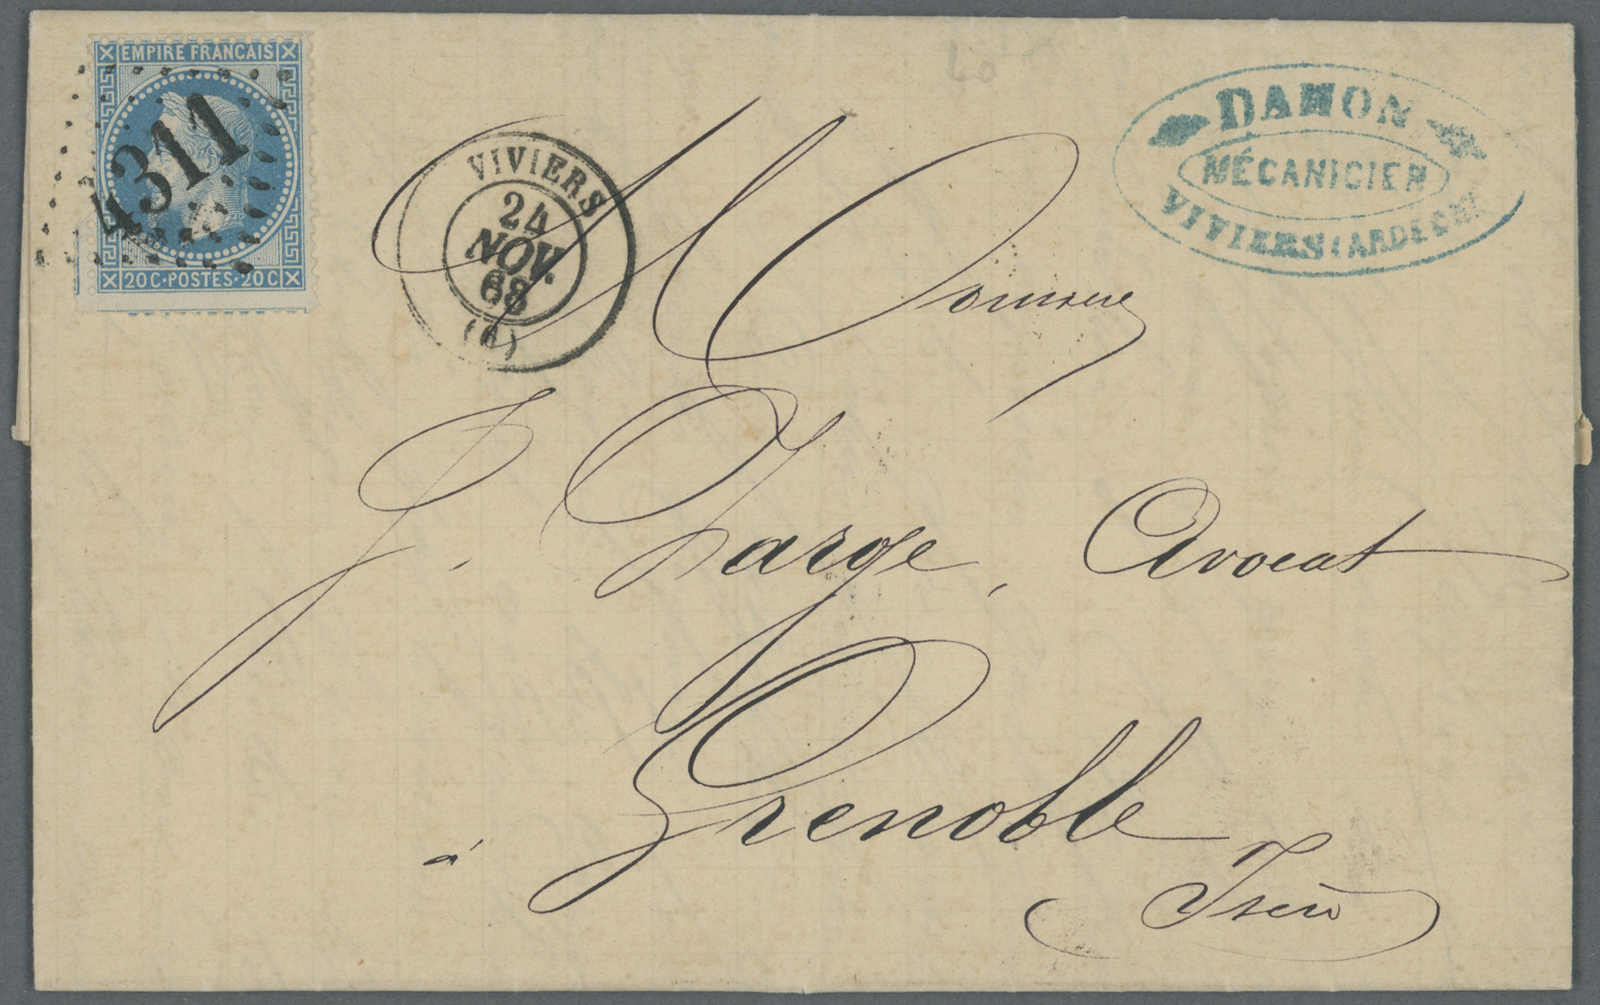 EMPIRE FRANCAIS
4311
20C·POSTES·20C
VIVIERS
24
NOV.
68
(6)
DAMON
MÉCANICIEN
VIVIERS (ARDÈCHE)
Monsieur
J. Farge, Avocat
à Grenoble
Isère